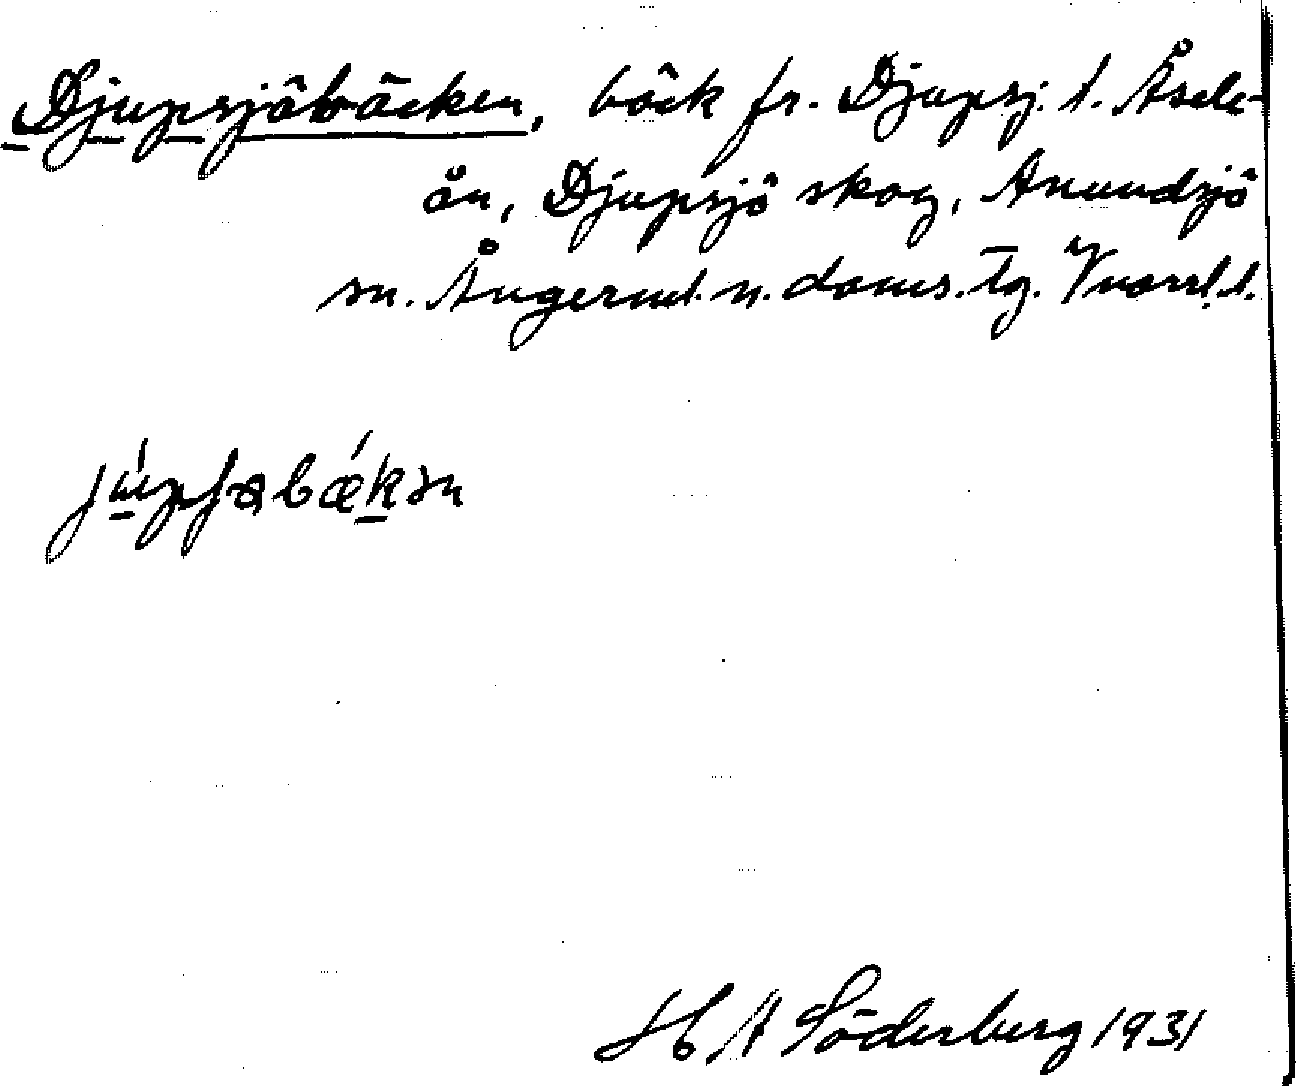 Djupsjöbäcken, bäck fr. Djupsj. t. Åsele-
ån, Djupsjö skog, Anundsjö
sn. Ångerml. n. doms. tg. Vnorrl. l.
H A Söderberg 1931